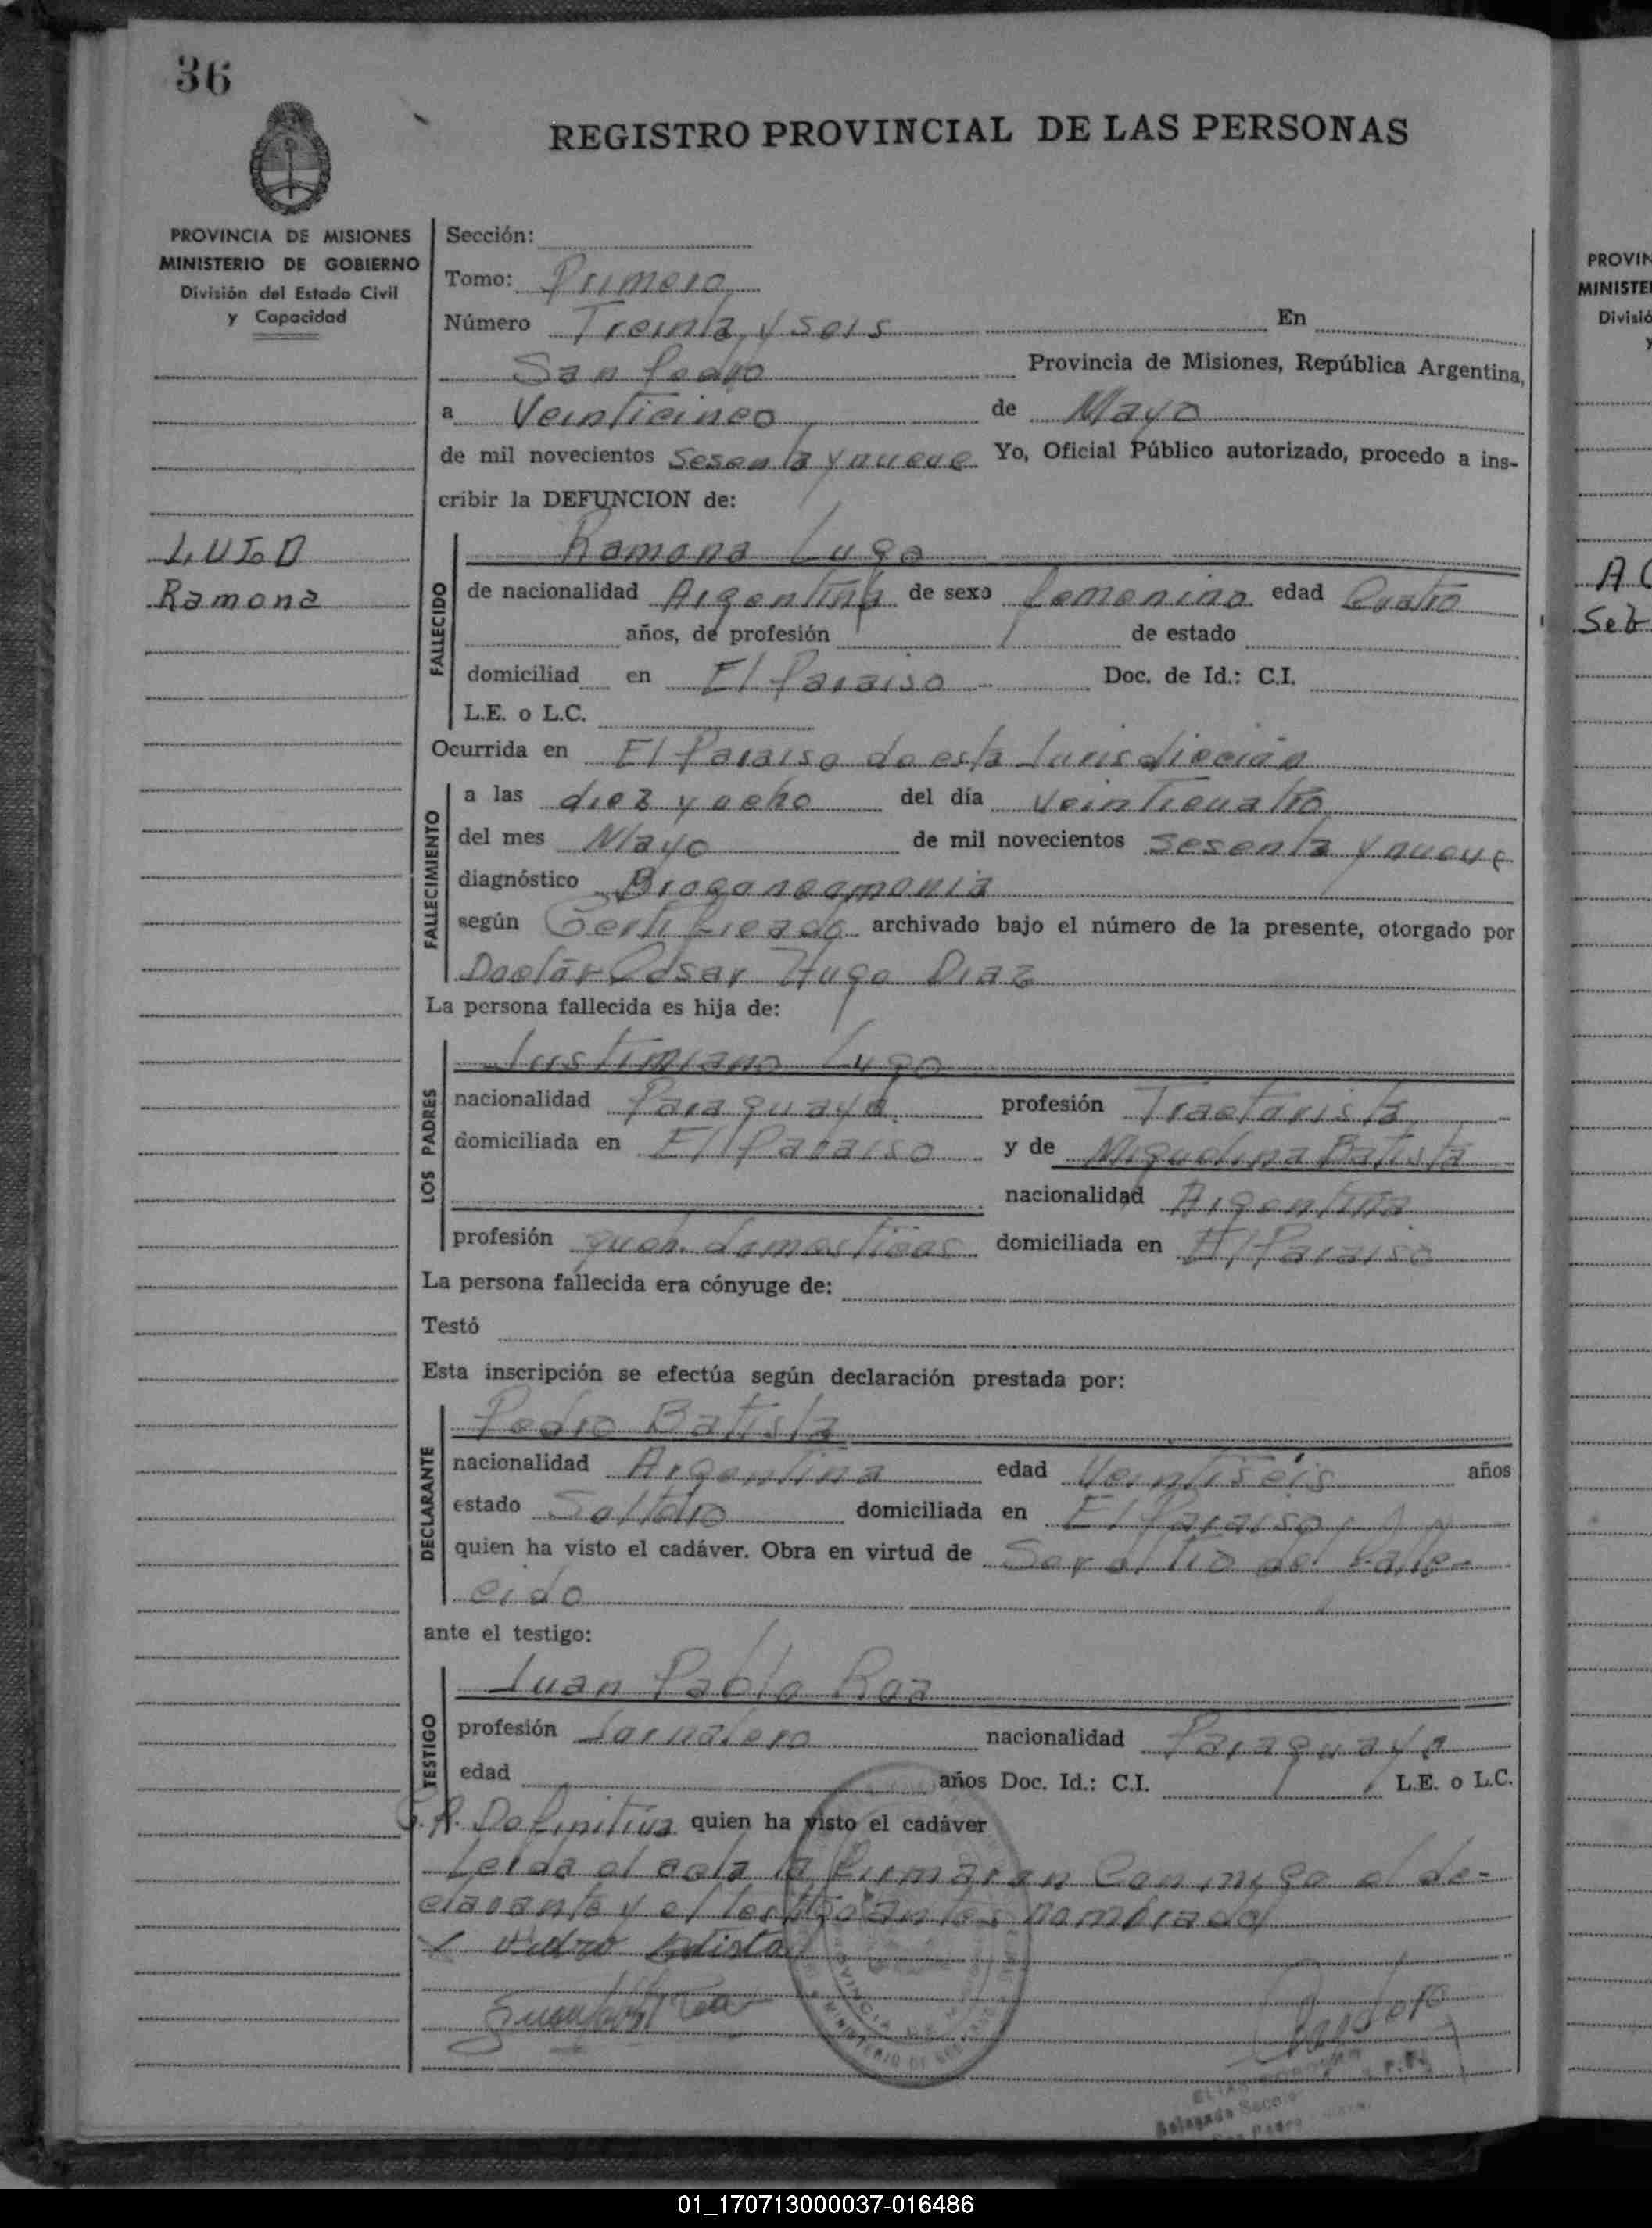 36
REGISTRO PROVINCIAL DE LAS PERSONAS
PROVINCIA DE MISIONES
MINISTERIO DE GOBIERNO
División del Estado Civil
y Capacidad
LUGO
Ramona
Sección:
Tomo: Primero
Número Treinta y seis En
San Pedro Provincia de Misiones, República Argentina,
a Veinticinco de Mayo
de mil novecientos sesenta y nueve Yo, Oficial Público autorizado, procedo a ins-
cribir la DEFUNCION de:
FALLECIDO
Ramona Lugo
de nacionalidad Argentina de sexo femenino edad Cuatro
años, de profesión de estado
domiciliad en El Paraiso Doc. de Id.: C.I.
L.E. o L.C.
Ocurrida en El Paraiso de esta Jurisdicción
FALLECIMIENTO
a las diez y ocho del día veinticuatro
del mes Mayo de mil novecientos sesenta y nueve
diagnóstico
según Certificado archivado bajo el número de la presente, otorgado por
Doctor Hugo Diaz
La persona fallecida es hija de:
LOS PADRES
Justimiano Lugo
nacionalidad Paraguaya profesión Tractorista
domiciliada en El Paraiso y de Miguelina Batista
nacionalidad Argentina
profesión queh. domesticos domiciliada en El Paraiso
La persona fallecida era cónyuge de:
Testó
Esta inscripción se efectúa según declaración prestada por:
DECLARANTE
Pedro Batista
nacionalidad Argentina edad Veintiseis años
estado Soltero domiciliada en El Paraiso
quien ha visto el cadáver. Obra en virtud de Ser tio del falle-
cido
ante el testigo:
TESTIGO
Juan Pablo Roa
profesión Jornalero nacionalidad Paraguaya
edad años Doc. Id.: C.I. L.E. o L.C.
Definitiva quien ha visto el cadáver
Leida el acta la firmaron Conmigo el de-
clarante y el testigo antes nombrado
Pedro Batista
Delegado
San Pedro
PROVIN
MINISTE
Divisió
y
01_170713000037-016486